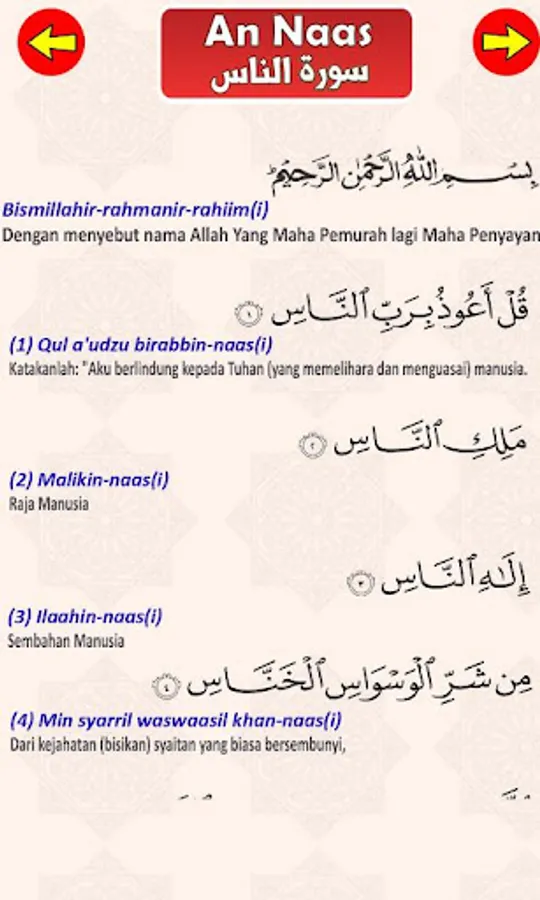 An Naas
سورة الناس
بِسْمِ اللّٰهِ الرَّحْمٰنِ الرَّحِيْمِ
Bismillahir-rahmanir-rahiim(i)
Dengan menyebut nama Allah Yang Maha Pemurah lagi Maha Penyayan
قُلْ أَعُوذُ بِرَبِّ ٱلنَّاسِ ١
(1) Qul a'udzu birabbin-naas(i)
Katakanlah: "Aku berlindung kepada Tuhan (yang memelihara dan menguasai) manusia.
مَلِكِ ٱلنَّاسِ ٢
(2) Malikin-naas(i)
Raja Manusia
إِلَٰهِ ٱلنَّاسِ ٣
(3) Ilaahin-naas(i)
Sembahan Manusia
مِن شَرِّ ٱلْوَسْوَاسِ ٱلْخَنَّاسِ ٤
(4) Min syarril waswaasil khan-naas(i)
Dari kejahatan (bisikan) syaitan yang biasa bersembunyi,